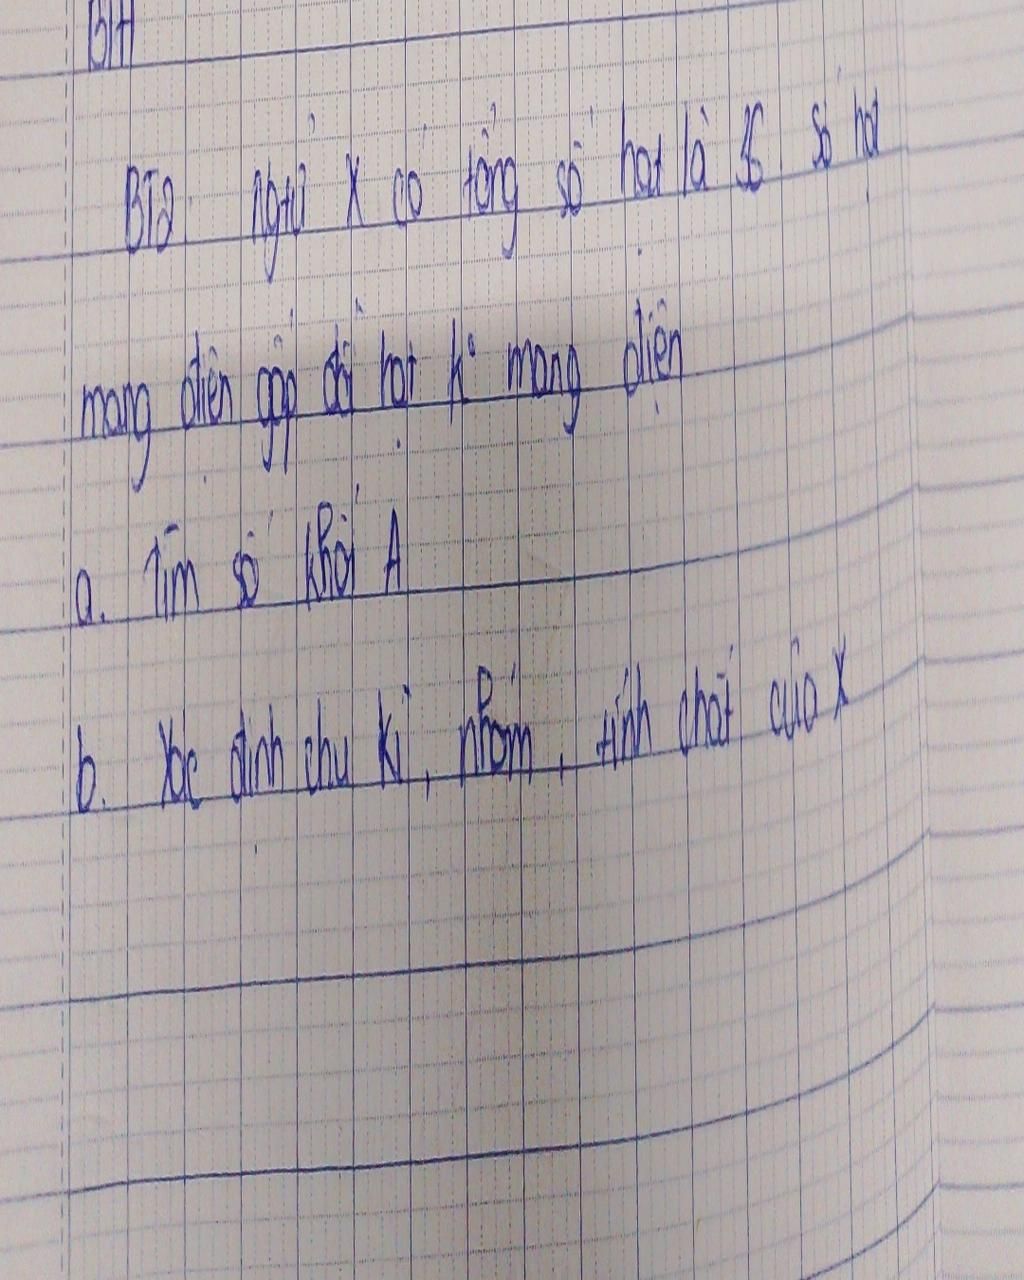 BT1
BT2 ngtử X có tổng số hạt là 36 số hạt
mang điện gấp đôi hạt k° mang điện
a. Tìm số khối A
b. Xác định chu kì, nhóm, tính chất của X